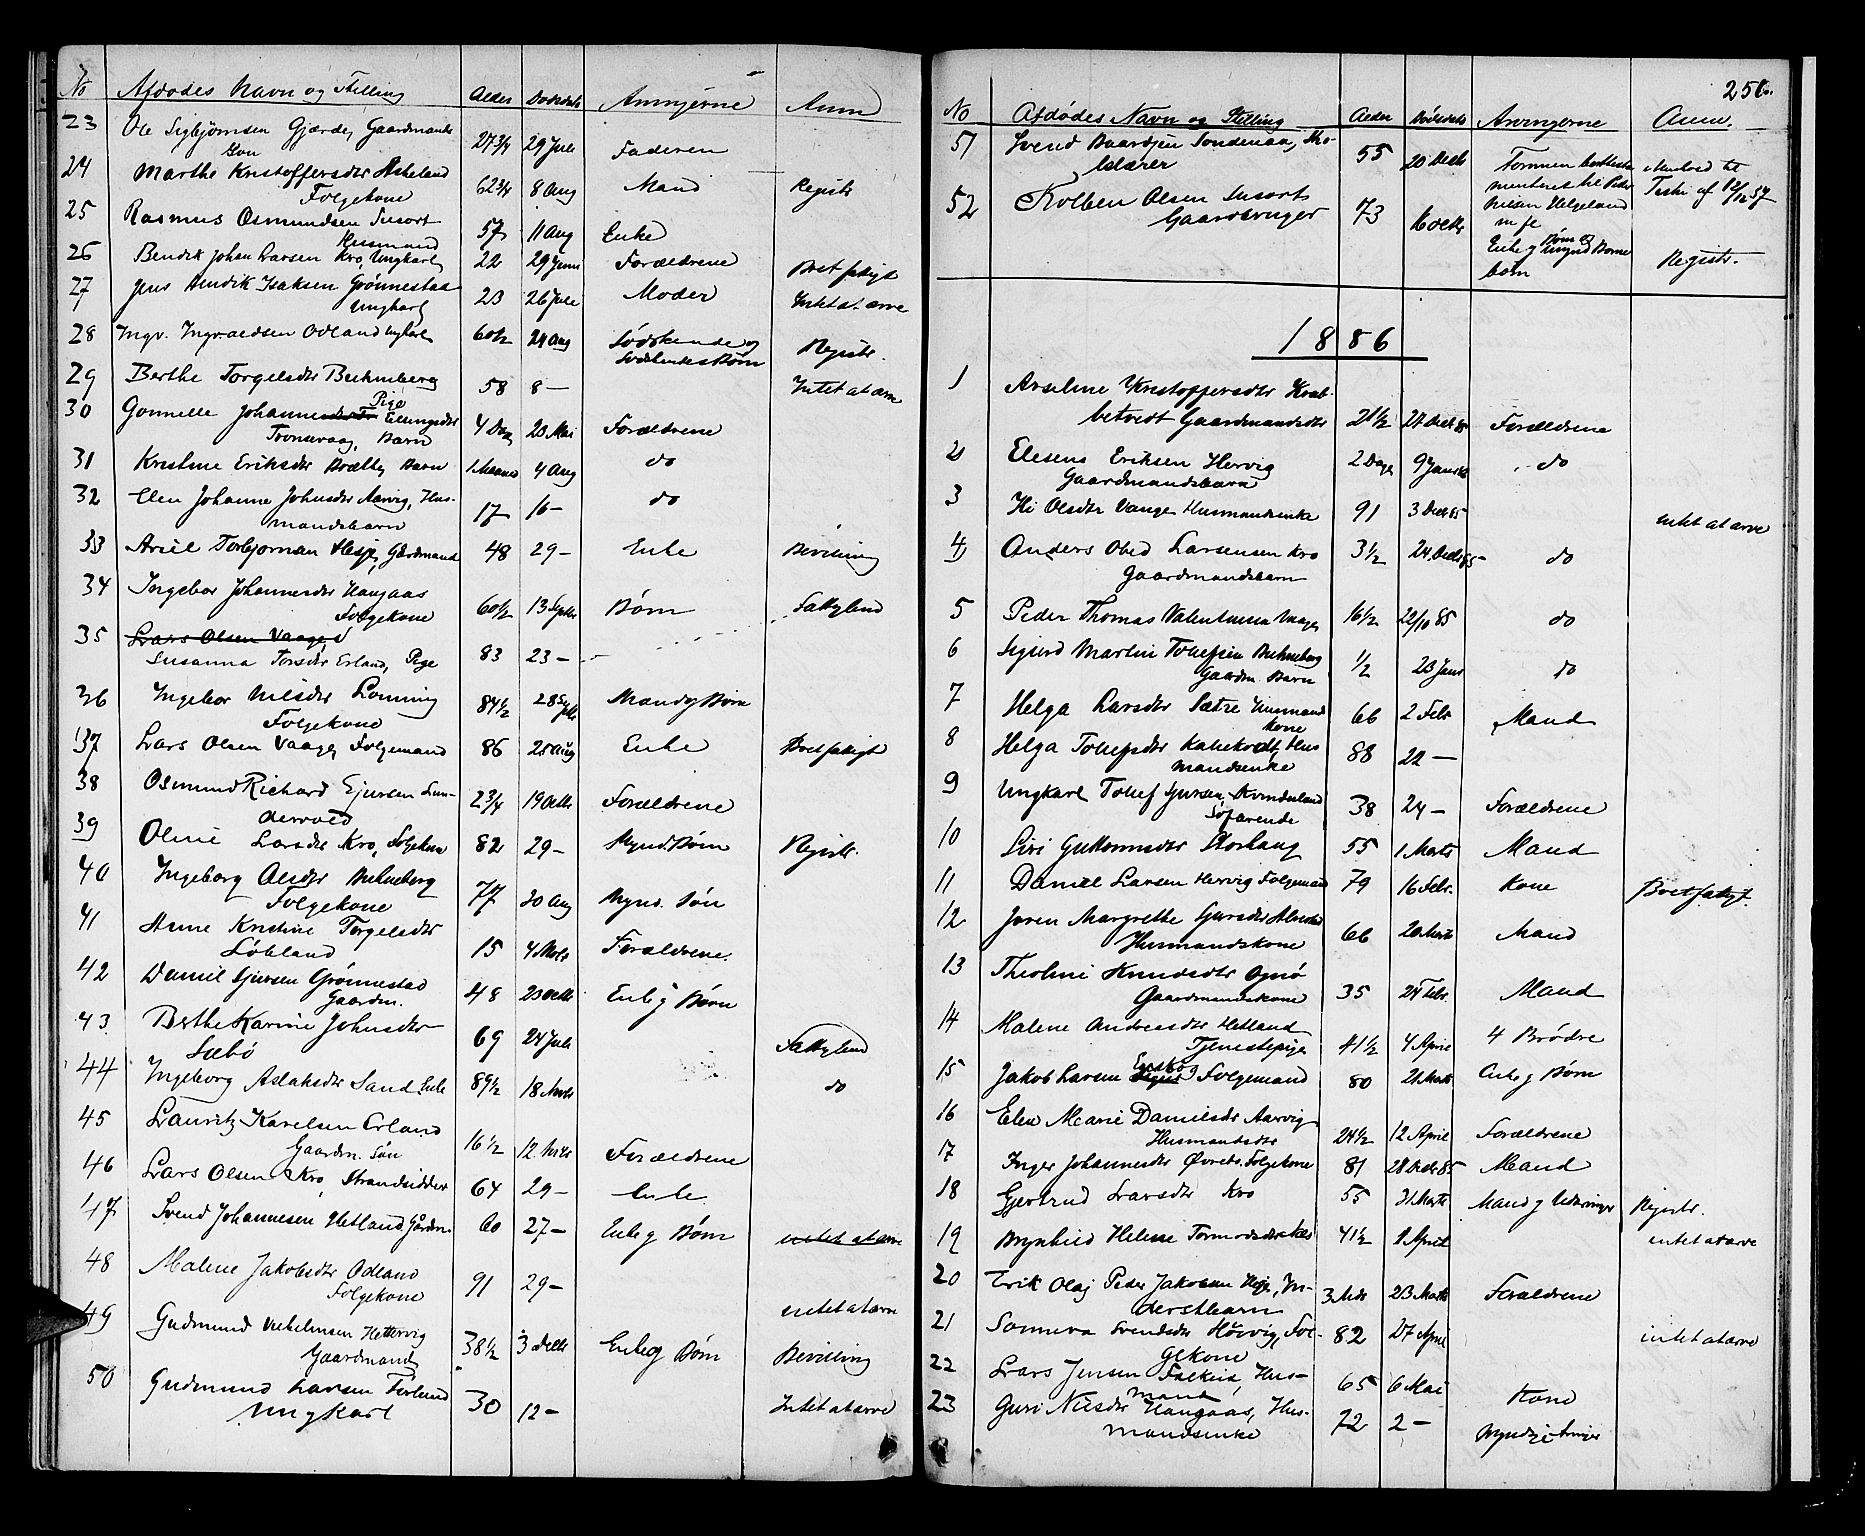 No Afdødes Navn og Stilling Alder Dødsdato Arvingerne Anm
23 Ole Sigbjørnsen Gjærde, Gaardmands
Søn 27 3/4 29 Juli Faderen
24 Marthe Kristoffersdtr Askeland
Folgekone 62 3/4 8 Aug Mand Registr
25 Rasmus Osmundsen Susort
Husmand 57 11 Aug Enke
26 Bendik Johan Larsen Kro, Ungkarl 22 29 Juni Forældrene Bortfæligt
27 Jens Hendrik Isaksen Grønnestad
Ungkarl 23 26 Juli Moder Intet at arve
28 Ingv. Ingvaldsen Odland Ungkarl 60 1/2 24 Aug Sødskende og
Sødskendes Børn Registr.
29 Berthe Torgelsdtr Buhneberg
Pige 58 8 — Intet at arve
30 Gonnelle Johanne Ellingsdtr
Barn 4 Dag 23 Mai Forældrene
31 Kristine Eriksdtr Brælly Barn 1 Maaned 4 Aug do
32 Elen Johanne Johnsdtr Aarvig, Hus-
mandsbarn 17 16 — do
33 Ariel Torbjørnsen Hesje, Gaardmand 48 29 — Enke Bevilling
34 Ingebor Johannesdtr Haugaas
Folgekone 60 1/2 13 Septbr Børn Fattiglem
35 Lars Olsen Vaage
Susanna Torsdtr Erland, Pige 83 23 —
36 Ingebor Nilsdtr Lonning
Folgekone 84 1/2 28 Septbr Mand og Børn
37 Lars Olsen Vaage, Folgemand 86 25 Aug Enke Bortfæligt
38 Osmund Richard Ejursen Lun-
dervold 2 3/4 19 Octb Forældrene
39 Oline Larsdtr Kro, Folgekone 82 29 — Mynd. Børn Registr.
40 Ingeborg Olsdtr Buhneberg
Folgekone 77 30 Aug Mynd. Søn
41 Anne Kristine Torgelsdtr
Løbland 15 4 Forældrene.
42 Daniel Gjursen Grønnestad
Gaardm. 48 23 Octb Enke og Børn
43 Berthe Karine Johnsdtr
Sæbø 69 24 Juli Fattiglem
44 Ingeborg Aslaksdtr Sand, Enke 89 1/2 18 Novbr do
45 Lauritz Karelsen Erland
Gaardm. Søn 16 1/2 12 Novbr Forældrene
46 Lars Olsen Kro, Strandsidder 64 29 — Enke
47 Svend Johannesen Hetland, Gårdm. 60 27 — Enke og Børn intet at arve
48 Malene Jakobsdtr Odland
Folgekone 91 29 — intet at arve
49 Gudmund Vilhelmsen Hettervig
Gaardmand 38 1/2 3 Decbr Enke og Børn Bevilling
50 Gudmund Larsen Førland
Ungkarl 30 12 — Intet at arve
256.
No Afdødes Navn og Stilling Alder Dødsdato Arvingerne Anm.
51 Svend Baardsen Sondenaa, Sko-
lelærer 55 20 Decb
52 Kolben Olsen Susort
Gaardbruger 73 Børn Registr.
1886
1 Arseline Kristoffersdtr Krab-
betvedt Gaardmandsdtr 21 1/2 27 Decb 85 Forældrene
2 Elesens Eriksen Hervig
Gaardmandsbarn 2 Dage 9 Januar do
3 Hi Olsdtr Vaage Husmandsenke 91 3 Decb 85 intet at arve
4 Anders Obed Larsensen Kro
Gaardmandsbarn 3 1/2 24 Decb 85 do
5 Peder Thomas Valentinsen Vaage 16 1/2 22/10 85 do
6 Sigurd Martin Tollefsen Buhneberg
Gaardm. Barn 1/2 23 Janr do
7 Helga Larsdtr Sætre Husmands
kone 66 2 Febr Mand
8 Helga Tollefsdtr Kallekodt, Hus
mandsenke 88 22 —
9 Ungkarl Tollef Gjursen, Kvinnesland
Søfarende 38 24 — Forældrene
10 Siri Guttormsdtr Storhaug 55 1 Marts Mand
11 Daniel Larsen Hervig Folgemand 79 16 Febr. Kone Bortfæligt.
12 Joren Margrethe Gjursdtr
Husmandskone 66 20 Marts Mand
13 Theoline Knudsdtr Ognø
Gaardmandskone 35 24 Febr. Mand
14 Malene Andreasdtr Hetland
Tjenestepige 41 1/2 4 April 4 Brødre
15 Jakob Larsen Folgemand 80 21 Marts Enke og Børn
16 Elen Marie Danielsdtr Aarvig
Husmandsdtr 24 1/2 12 April Forældrene
17 Inger Johannesdtr Øvreb. Folgekone 81 28 Decb 85 Mand
18 Gjertrud Larsdtr Kro 55 31 Marts Mand og Registr.
19 Brynhild Helene Tormodsdtr 41 1/2 1 April intet at arve
20 Erik Olaj Peder Jakobsen Hesje, In-
derstbarn 3 Mdr 23 Marts Forældrene
21 Sonneva Svendsdtr Høivig, Fol-
gekone 82 27 April intet at arve
22 Lars Jensen Falkeid, Hus-
mand 65 6 Mai Kone
23 Guri Nilsdtr Haugaas, Hus-
mandsenke 72 2 — Myndige Arvinger